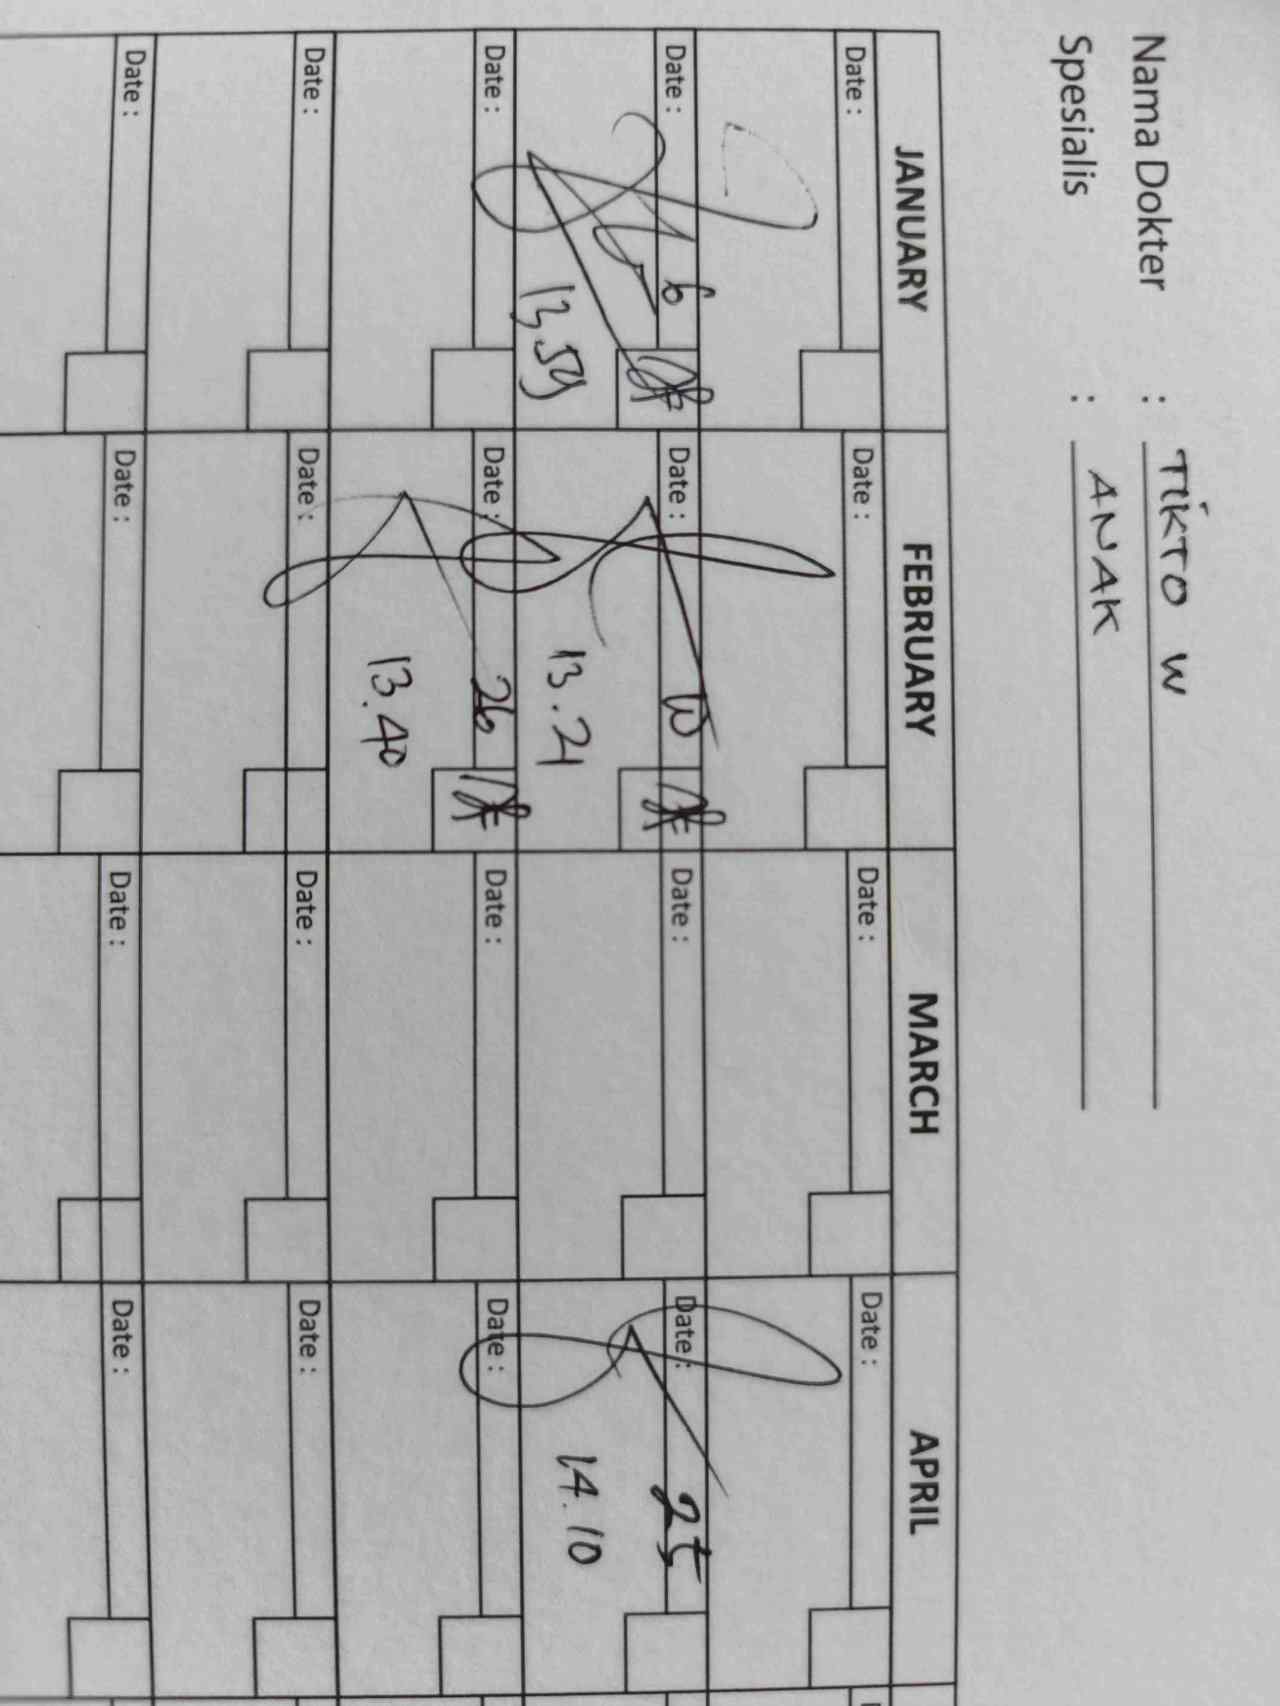 Nama Dokter : TIKTO W
Spesialis : ANAK
JANUARY FEBRUARY MARCH APRIL
Date : Date : Date : Date :
Date : 6 Date : 10 Date : Date : 25
13.59 13.21 14.10
Date : Date : 26 Date : Date :
13.40
Date : Date : Date : Date :
Date : Date : Date : Date :